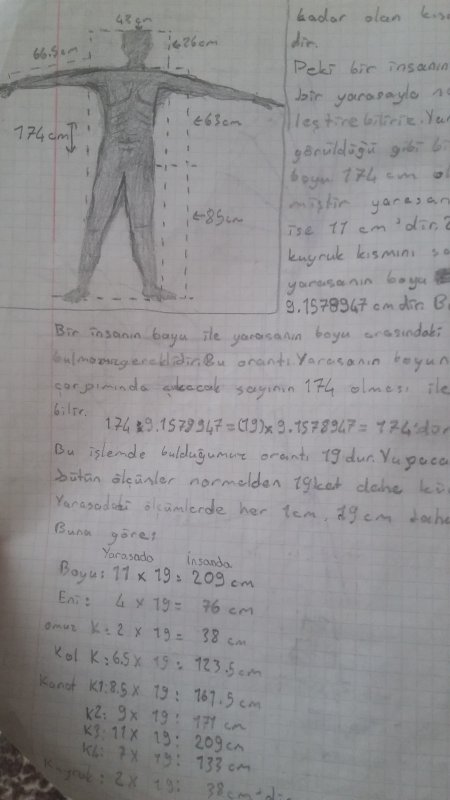 48cm
26cm
66.5cm
63cm
174cm
85cm
kadar olan kıs
dir.
Peki bir insanın
bir yarasayla
leştirebiliriz. Yar
görüldüğü gibi bi
boyu 174 cm ol
müştür yarasan
ise 11 cm'dir.
kuyruk kısmını
yarasanın boyu
9.1578947 cm dir. B
Bir insanın boyu ile yarasanın boyu arasındaki
bulmamız gereklidir. Bu orantı Yarasanın boyun
çarpımında çıkacak sayının 174 olması ile
bilir.
174 9.1578947=(19)x9.1578947=174'dür
Bu işlemde bulduğumuz orantı 19 dur. Yapaca
bütün ölçümler normalden 19 kat daha
Yarasadaki ölçümlerde her 1cm, 19 cm daha
Buna göre;
Yarasada insanda
Boyu: 11 x 19= 209 cm
Eni: 4 x 19= 76 cm
omuz K: 2 x 19= 38 cm
Kol K: 6.5 x 19= 123.5cm
Kanat K1: 8.5 x 19: 161.5cm
K2: 9 x 19: 171 cm
K3: 11 x 19: 209 cm
K4: 7 x 19: 133 cm
Kuyruk: 2 x 19: 38 cm'dir